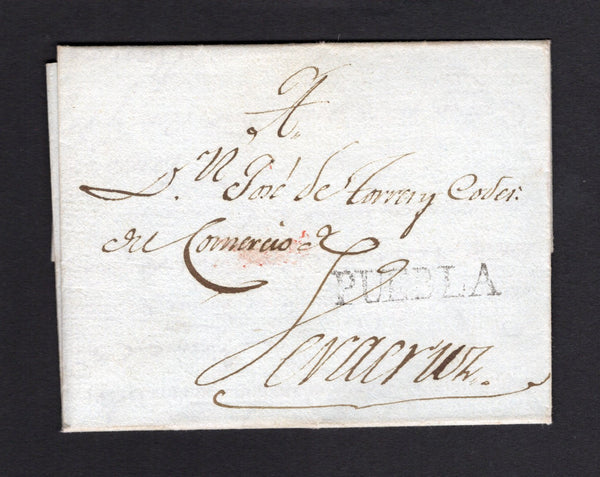 A.
D.n José de Torres y
del Comercio de
PUEBLA
Veracruz.